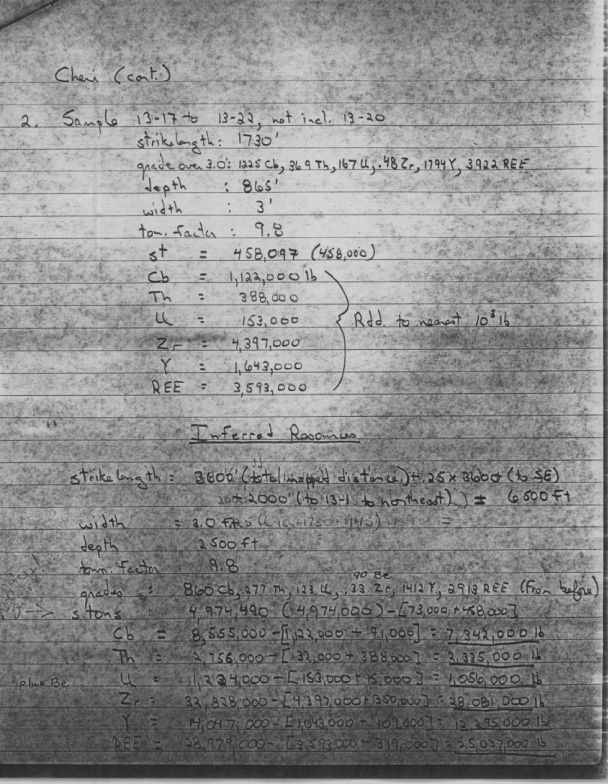 Cheri (cont.)
2. Sample 13-17 to 13-22, not incl. 13-20
strike length: 1730'
grade over 3.0': 1225 Cb, 369 Th, 167 U, .48 Zr, 1794 Y, 3922 REE
depth : 865'
width : 3'
tonn. factor : 9.8
st = 458,097 (458,000)
Cb = 1,122,000 lb
Th = 388,000
U = 153,000 Rdd. to nearest 10³ lb
Zr = 4,397,000
Y = 1,643,000
REE = 3,593,000
Inferred Resources
strike length = 3600' (total mapped distance) + .25 x 3600 (to SE)
2000' (to 13-1 to northeast) = 6500 ft
width = 3.0 ft
depth 2500 ft
tonn. factor 9.8
90 Be
grades : 860 Cb, 277 Th, 123 U, .33 Zr, 1412 Y, 2913 REE (from before)
s. tons : 4,974,490 (4,974,000) - [73,000 + 458,000]
Cb = 8,555,000 - [1,122,000 + 91,000] = 7,342,000 lb
Th = 2,756,000 - [32,000 + 388,000] = 2,335,000 lb
plus Be U = 1,224,000 - [153,000 + 15,000] = 1,056,000 lb
Zr = 32,828,000 - [4,397,000 + 350,000] = 28,081,000 lb
Y = 14,047,000 - [1,643,000 + 109,000] = 12,295,000 lb
REE = 28,979,000 - [3,593,000 + 349,000] = 25,037,000 lb